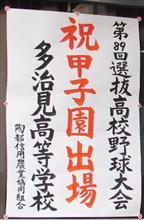 第89回選抜高校野球大会
祝甲子園出場
多治見高等学校
陶都信用農業協同組合